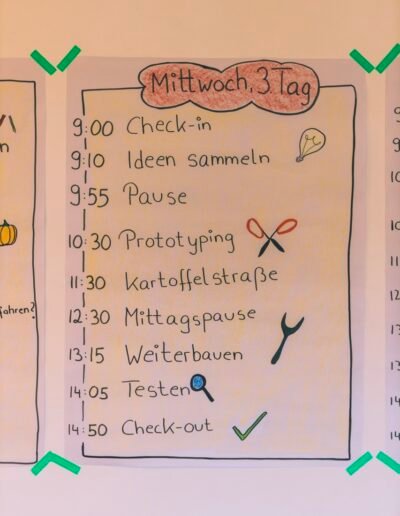 Mittwoch, 3. Tag
9:00 Check-in
9:10 Ideen sammeln
9:55 Pause
10:30 Prototyping
11:30 Kartoffelstraße
12:30 Mittagspause
13:15 Weiterbauen
14:05 Testen
14:50 Check-out